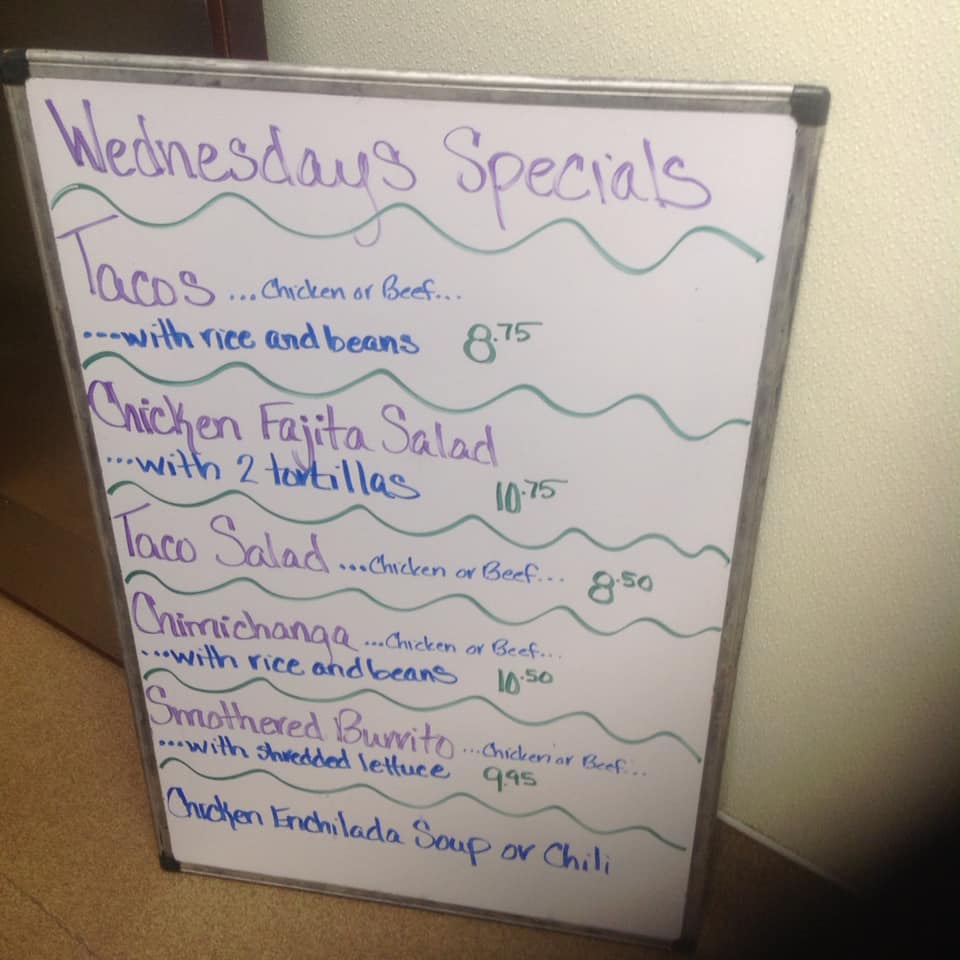 Wednesdays Specials
Tacos ...Chicken or Beef...
...with rice and beans 8.75
Chicken Fajita Salad
...with 2 tortillas 10.75
Taco Salad ...Chicken or Beef... 8.50
Chimichanga ...Chicken or Beef...
...with rice and beans 10.50
Smothered Burrito ...Chicken or Beef...
...with shredded lettuce 9.95
Chicken Enchilada Soup or Chili